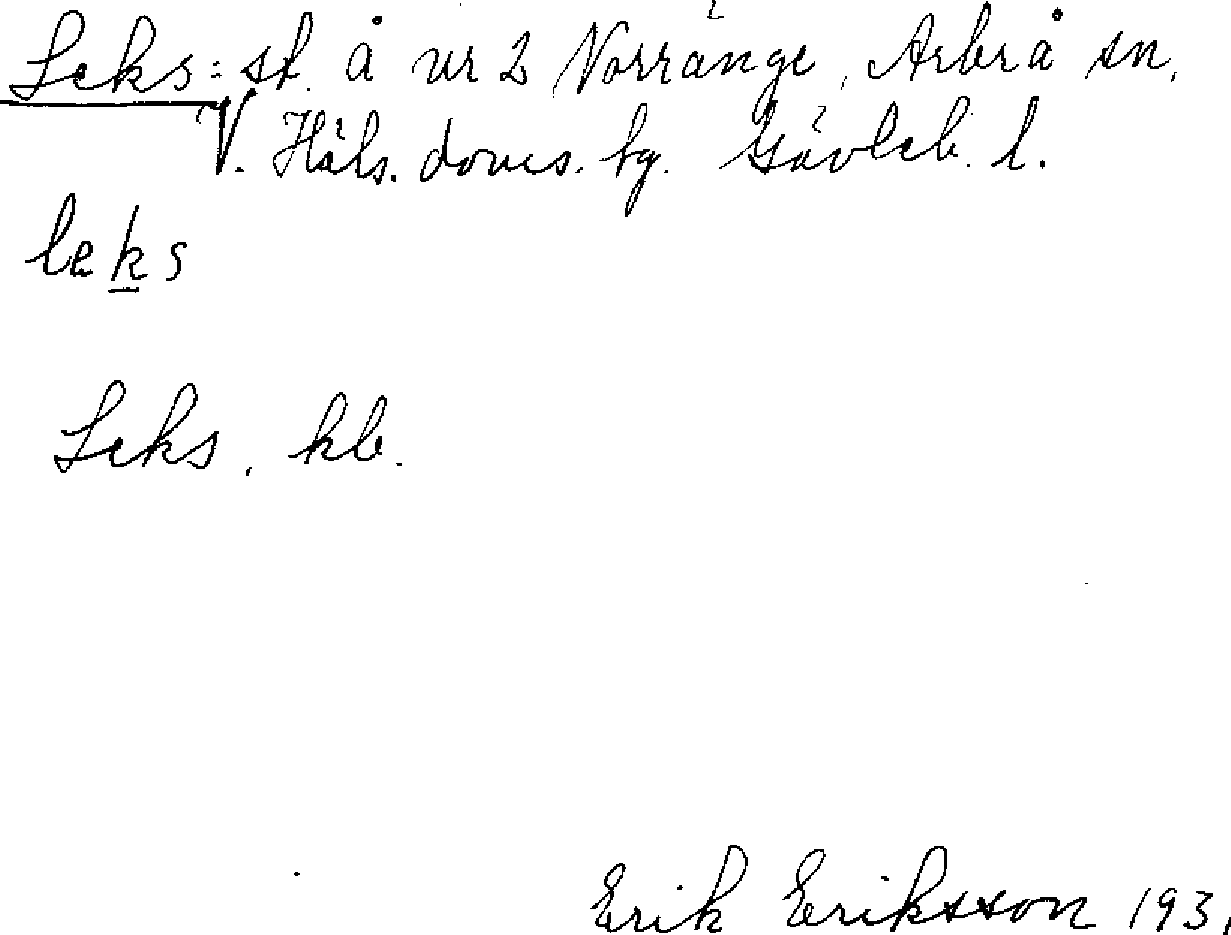 Leks: st. å nr 2 Norränge, Arbrå sn.
V. Häls. doms. hg. Gävleb. l.
leks
Leks, kb.
Erik Eriksson 193